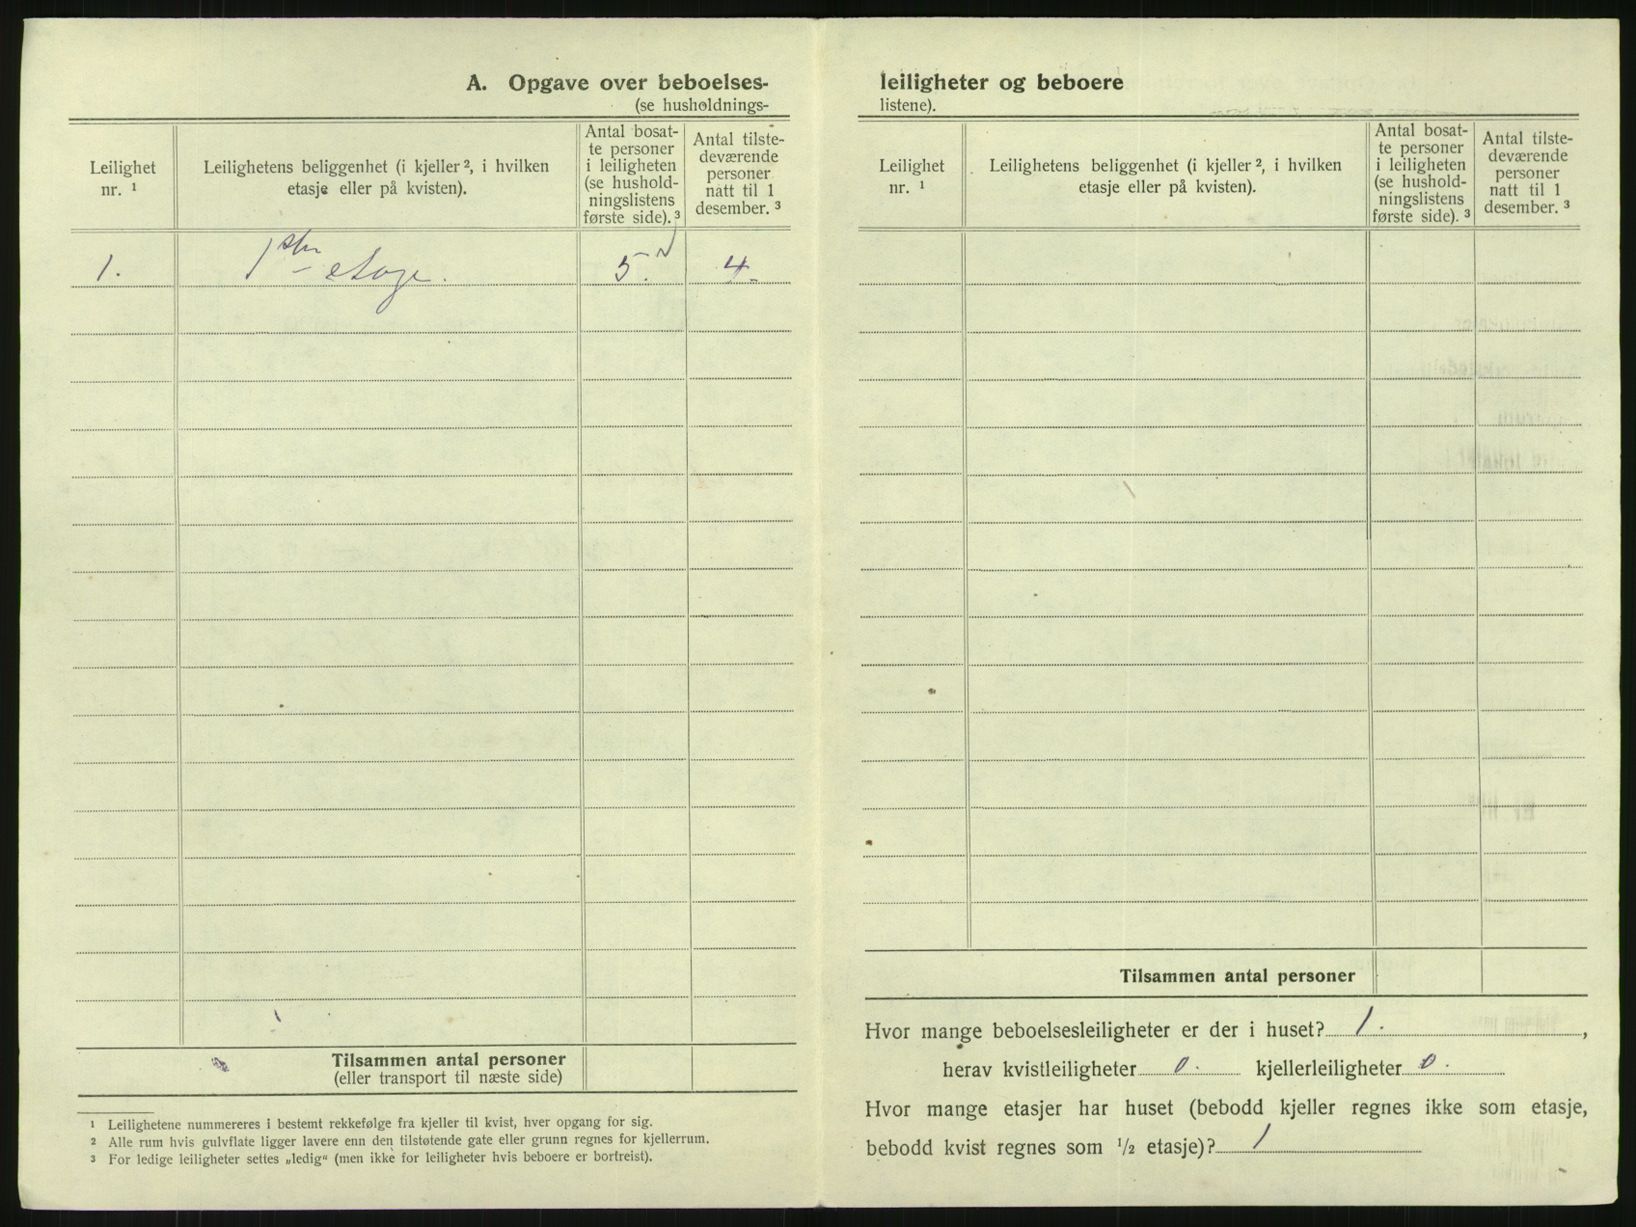 A. Opgave over beboelses-
(se husholdnings-
Leilighet
nr. ¹
Leilighetens beliggenhet (i kjeller ², i hvilken
etasje eller på kvisten).
Antal bosat-
te personer
i leiligheten
(se hushold-
ningslistens
første side). ³
Antal tilste-
deværende
personer
natt til 1
desember. ³
1. 1ste etage. 5. 4.
Tilsammen antal personer
(eller transport til næste side)
¹ Leilighetene nummereres i bestemt rekkefølge fra kjeller til kvist, hver opgang for sig.
² Alle rum hvis gulvflate ligger lavere enn den tilstøtende gate eller grunn regnes for kjellerrum.
³ For ledige leiligheter settes „ledig“ (men ikke for leiligheter hvis beboere er bortreist).
leiligheter og beboere
listene).
Leilighet
nr. ¹
Leilighetens beliggenhet (i kjeller ², i hvilken
etasje eller på kvisten).
Antal bosat-
te personer
i leiligheten
(se hushold-
ningslistens
første side). ³
Antal tilste-
deværende
personer
natt til 1
desember. ³
Tilsammen antal personer
Hvor mange beboelsesleiligheter er der i huset? 1. ,
herav kvistleiligheter 0. kjellerleiligheter 0.
Hvor mange etasjer har huset (bebodd kjeller regnes ikke som etasje,
bebodd kvist regnes som ½ etasje)? 1